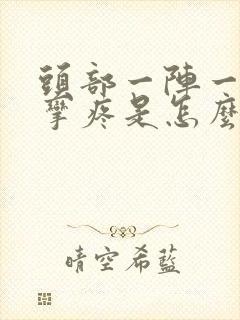 頭部一陣一
攣疼是怎麼
晴空希藍